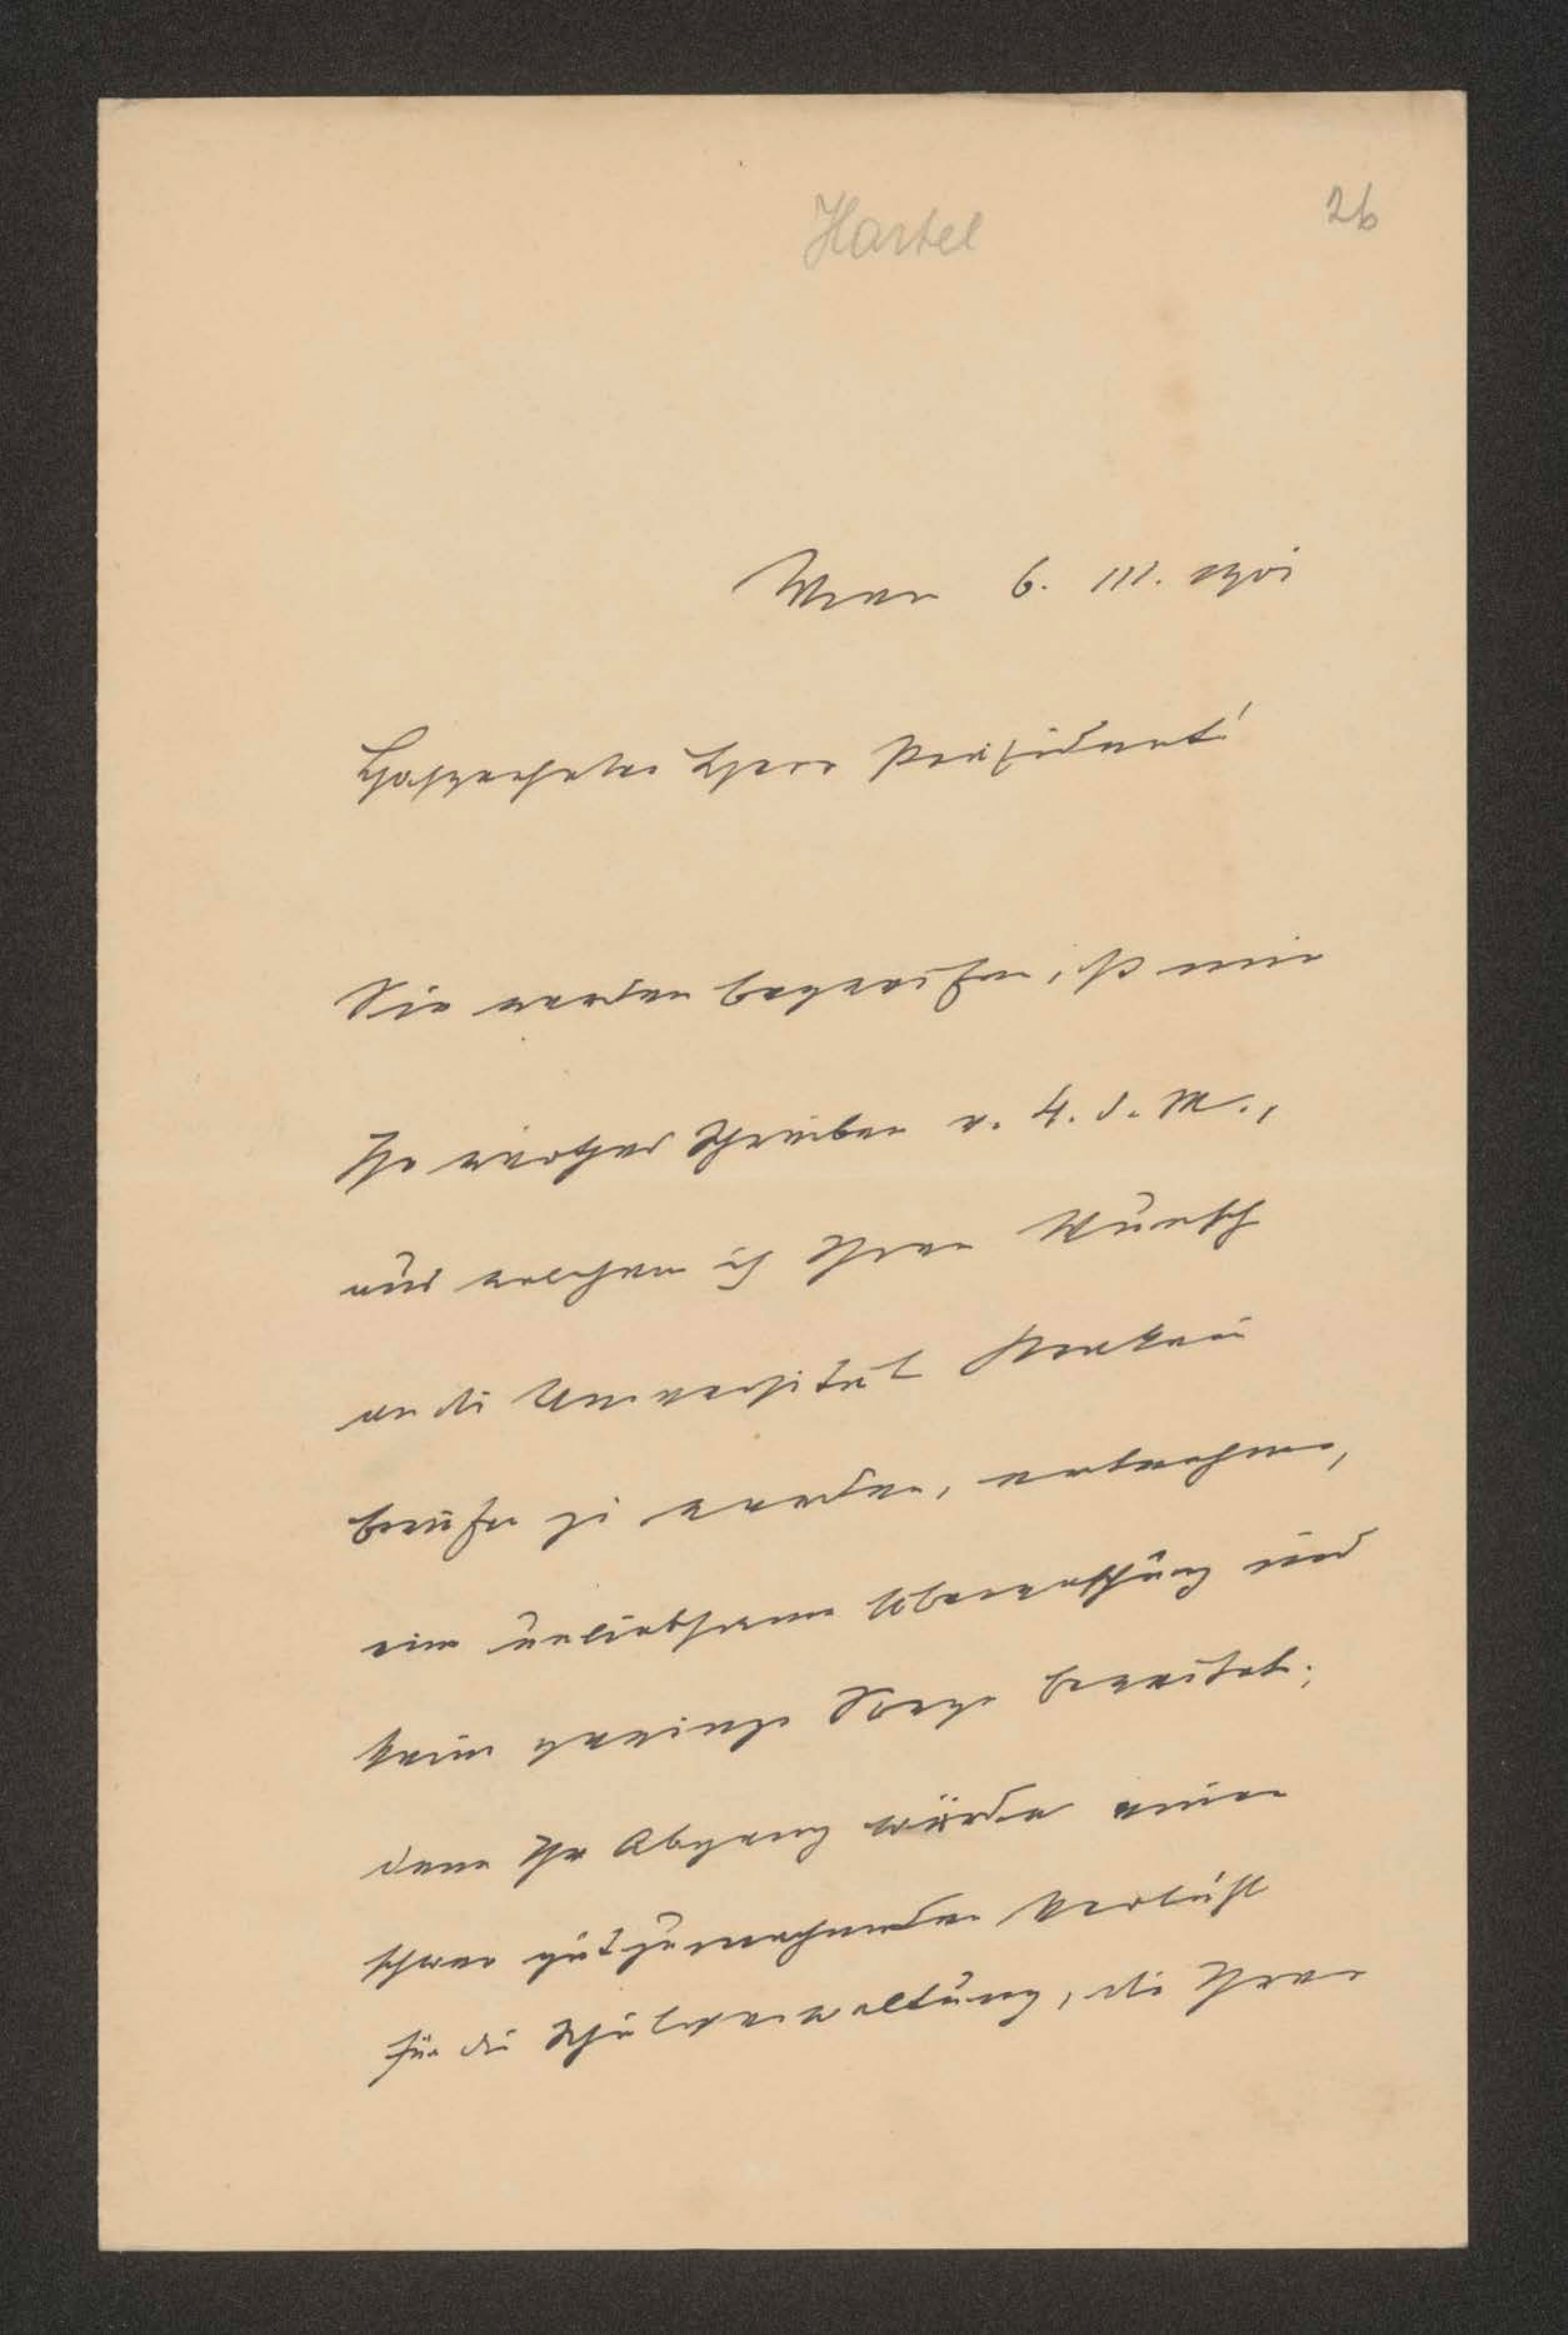 Hartel
26
Wien 6. III. 1901
Hochverehrter Herr Präsident!
Sie werden begreifen, dß mir
Ihr werthes Schreiben v. 4. d. M.,
aus welchem ich Ihren Wunsch
an die Universität Krakau
berufen zu werden, entnehme,
eine unliebsame Überraschung und
keine geringe Sorge bereitet;
denn Ihr Abgang würde einen
schwer gutzumachenden Verlust
für die Schulverwaltung, die Ihrer